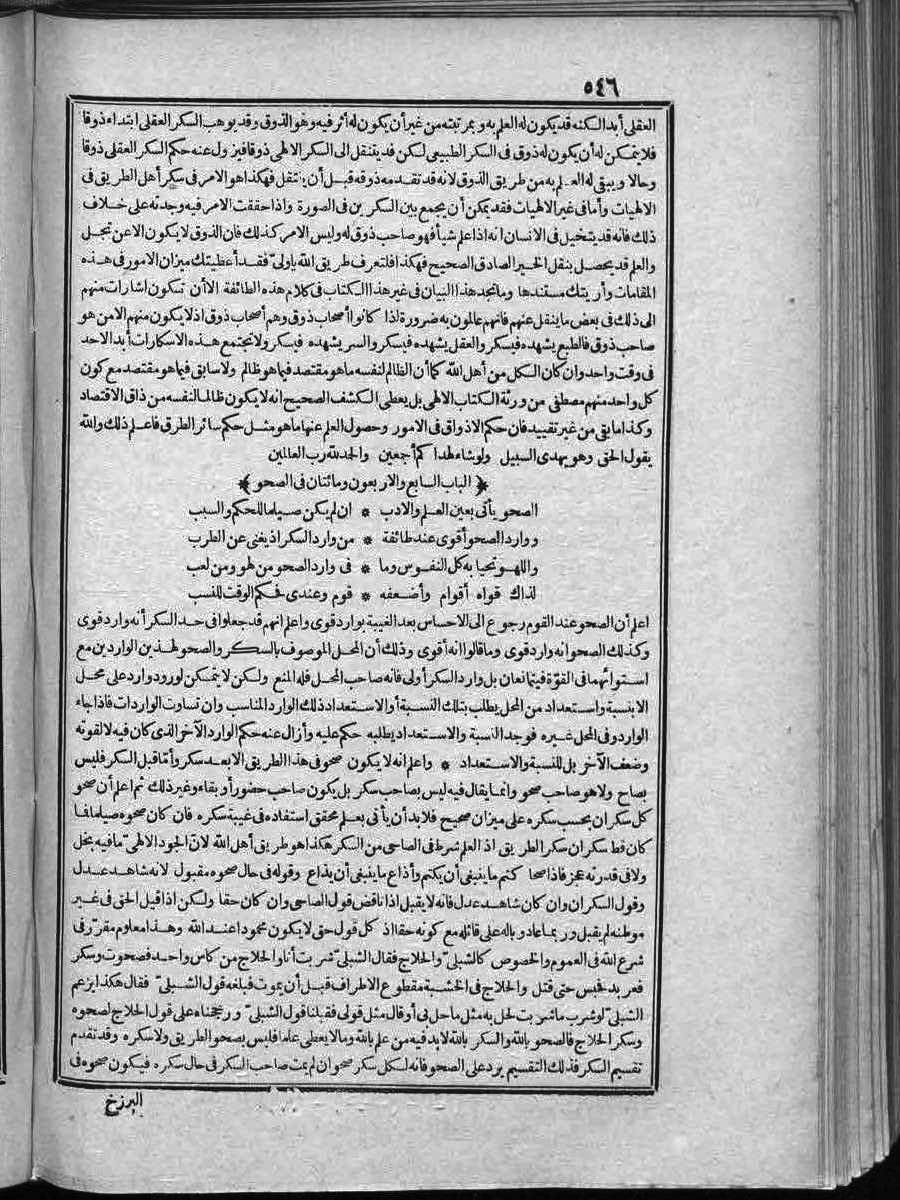 ٥٤٦
العقلى أبدا لكنه قد يكون له العلم به وبمرتبته من غير أن يكون له أثر فيه وهو الذوق وقد يوهب السكر العقلى ابتداء ذوقا
فلا يتمكن له أن يكون له ذوق فى السكر الطبيعى لكن قد ينتقل الى السكر الالهى ذوقا فيزول عنه حكم السكر العقلى ذوقا
وحالا ويبقى له العلم به من طريق الذوق لانه قد تقدمه ذوقه قبل أن ينتقل فهكذا هو الامر فى سكر أهل الطريق فى
الالهيات وأما فى غير الالهيات فقد يمكن أن يجمع بين السكرين فى الصورة واذا حققت الامر فيه وجدته على خلاف
ذلك فانه قد يتخيل فى الانسان انه اذا علم شيأ فهو صاحب ذوق له وليس الامر كذلك فان الذوق لا يكون الا عن تجل
والعلم قد يحصل بنقل الخبر الصادق الصحيح فهكذا فلتعرف طريق الله ياولى فقد أعطيتك ميزان الامور فى هذه
المقامات وأريتك مستندها وما تجد هذا البيان فى غير هذا الكتاب فى كلام هذه الطائفة الا أن تكون اشارات منهم
الى ذلك فى بعض ما ينقل عنهم فانهم عالمون به ضرورة اذا كانوا أصحاب ذوق وهم أصحاب ذوق اذ لا يكون منهم الا من هو
صاحب ذوق فالطبع يشهده فيسكر والعقل يشهده فيسكر والسر يشهده فيسكر ولا تجتمع هذه الاسكارات أبدا لاحد
فى وقت واحد وان كان الكل من أهل الله كما أن الظالم لنفسه ما هو مقتصد فيما هو ظالم ولا سابق فيما هو مقتصد مع كون
كل واحد منهم مصطفى من ورثة الكتاب الالهى بل يعطى الكشف الصحيح انه لا يكون ظالما لنفسه من ذاق الاقتصاد
وكذا ما بقى من غير تقييد فان حكم الاذواق فى الامور وحصول العلم عنها ما هو مثل حكم سائر الطرق فاعلم ذلك والله
يقول الحق وهو يهدى السبيل ولو شاء لهداكم أجمعين والحمد لله رب العالمين
﴿ الباب السابع والاربعون ومائتان فى الصحو ﴾
الصحو يأتى بعين العلم والادب * ان لم يكن صيلما للحكم والسبب
ووارد الصحو أقوى عند طائفة * من وارد السكر اذ يغنى عن الطرب
واللهو تحيا به كل النفوس وما * فى وارد الصحو من لهو ومن لعب
لذاك قواه أقوام وأضعفه * قوم وعندى فحكم الوقت للنسب
اعلم أن الصحو عند القوم رجوع الى الاحساس بعد الغيبة بوارد قوى واعلم انهم قد جعلوا فى حد السكر أنه وارد قوى
وكذلك الصحو انه وارد قوى وما قالوا انه أقوى وذلك أن المحل الموصوف بالسكر والصحو لهذين الواردين مع
استوائهما فى القوة فيتمانعان بل وارد السكر أولى فانه صاحب المحل فله المنع ولكن لا يتمكن لورود وارد على محل
الا بنسبة واستعداد من المحل يطلب بتلك النسبة أو الاستعداد ذلك الوارد المناسب وان تساوت الواردات فاذا جاء
الوارد وفى المحل غيره فوجد النسبة والاستعداد يطلبه حكم عليه وأزال عنه حكم الوارد الآخر الذى كان فيه لا لقوته
وضعف الآخر بل للنسبة والاستعداد * واعلم انه لا يكون صحو فى هذا الطريق الا بعد سكر وأما قبل السكر فليس
بصاح ولا هو صاحب صحو وانما يقال فيه ليس بصاحب سكر بل يكون صاحب حضور أو بقاء وغير ذلك ثم اعلم أن صحو
كل سكران بحسب سكره على ميزان صحيح فلا بد أن يأتى بعلم محقق استفاده فى غيبة سكره فان كان صحوه صيلما فما
كان قط سكران سكر الطريق اذ العلم شرط فى الصاحى من السكر هكذا هو طريق أهل الله لان الجود الالهى ما فيه بخل
ولا فى قدرته عجز فاذا صحا كتم ما ينبغى أن يكتم وأذاع ما ينبغى أن يذاع وقوله فى حال صحوه مقبول لانه شاهد عدل
وقول السكران وان كان شاهد عدل فانه لا يقبل اذا ناقض قول الصاحى وان كان حقا ولكن اذا قيل الحق فى غير
موطنه لم يقبل وربما عاد وباله على قائله مع كونه حقا اذ كل قول حق لا يكون محمودا عند الله وهذا معلوم مقرر فى
شرع الله فى العموم والخصوص كالشبلى والحلاج فقال الشبلى شربت أنا والحلاج من كأس واحد فصحوت وسكر
فعربد فحبس حتى قتل والحلاج فى الخشبة مقطوع الاطراف قبل أن يموت فبلغه قول الشبلى فقال هكذا يزعم
الشبلى لو شرب ما شربت لحل به مثل ما حل بى أو قال مثل قولى فقبلنا قول الشبلى ورجحناه على قول الحلاج لصحوه
وسكر الحلاج فالصحو بالله والسكر بالله لا بد فيه من علم بالله وما لا يعطى علما فليس بصحو الطريق ولا سكره وقد تقدم
تقسيم السكر فذلك التقسيم يرد على الصحو فانه لكل سكر صحو ان لم يمت صاحب السكر فى حال سكره فيكون صحوه فى
البرزخ